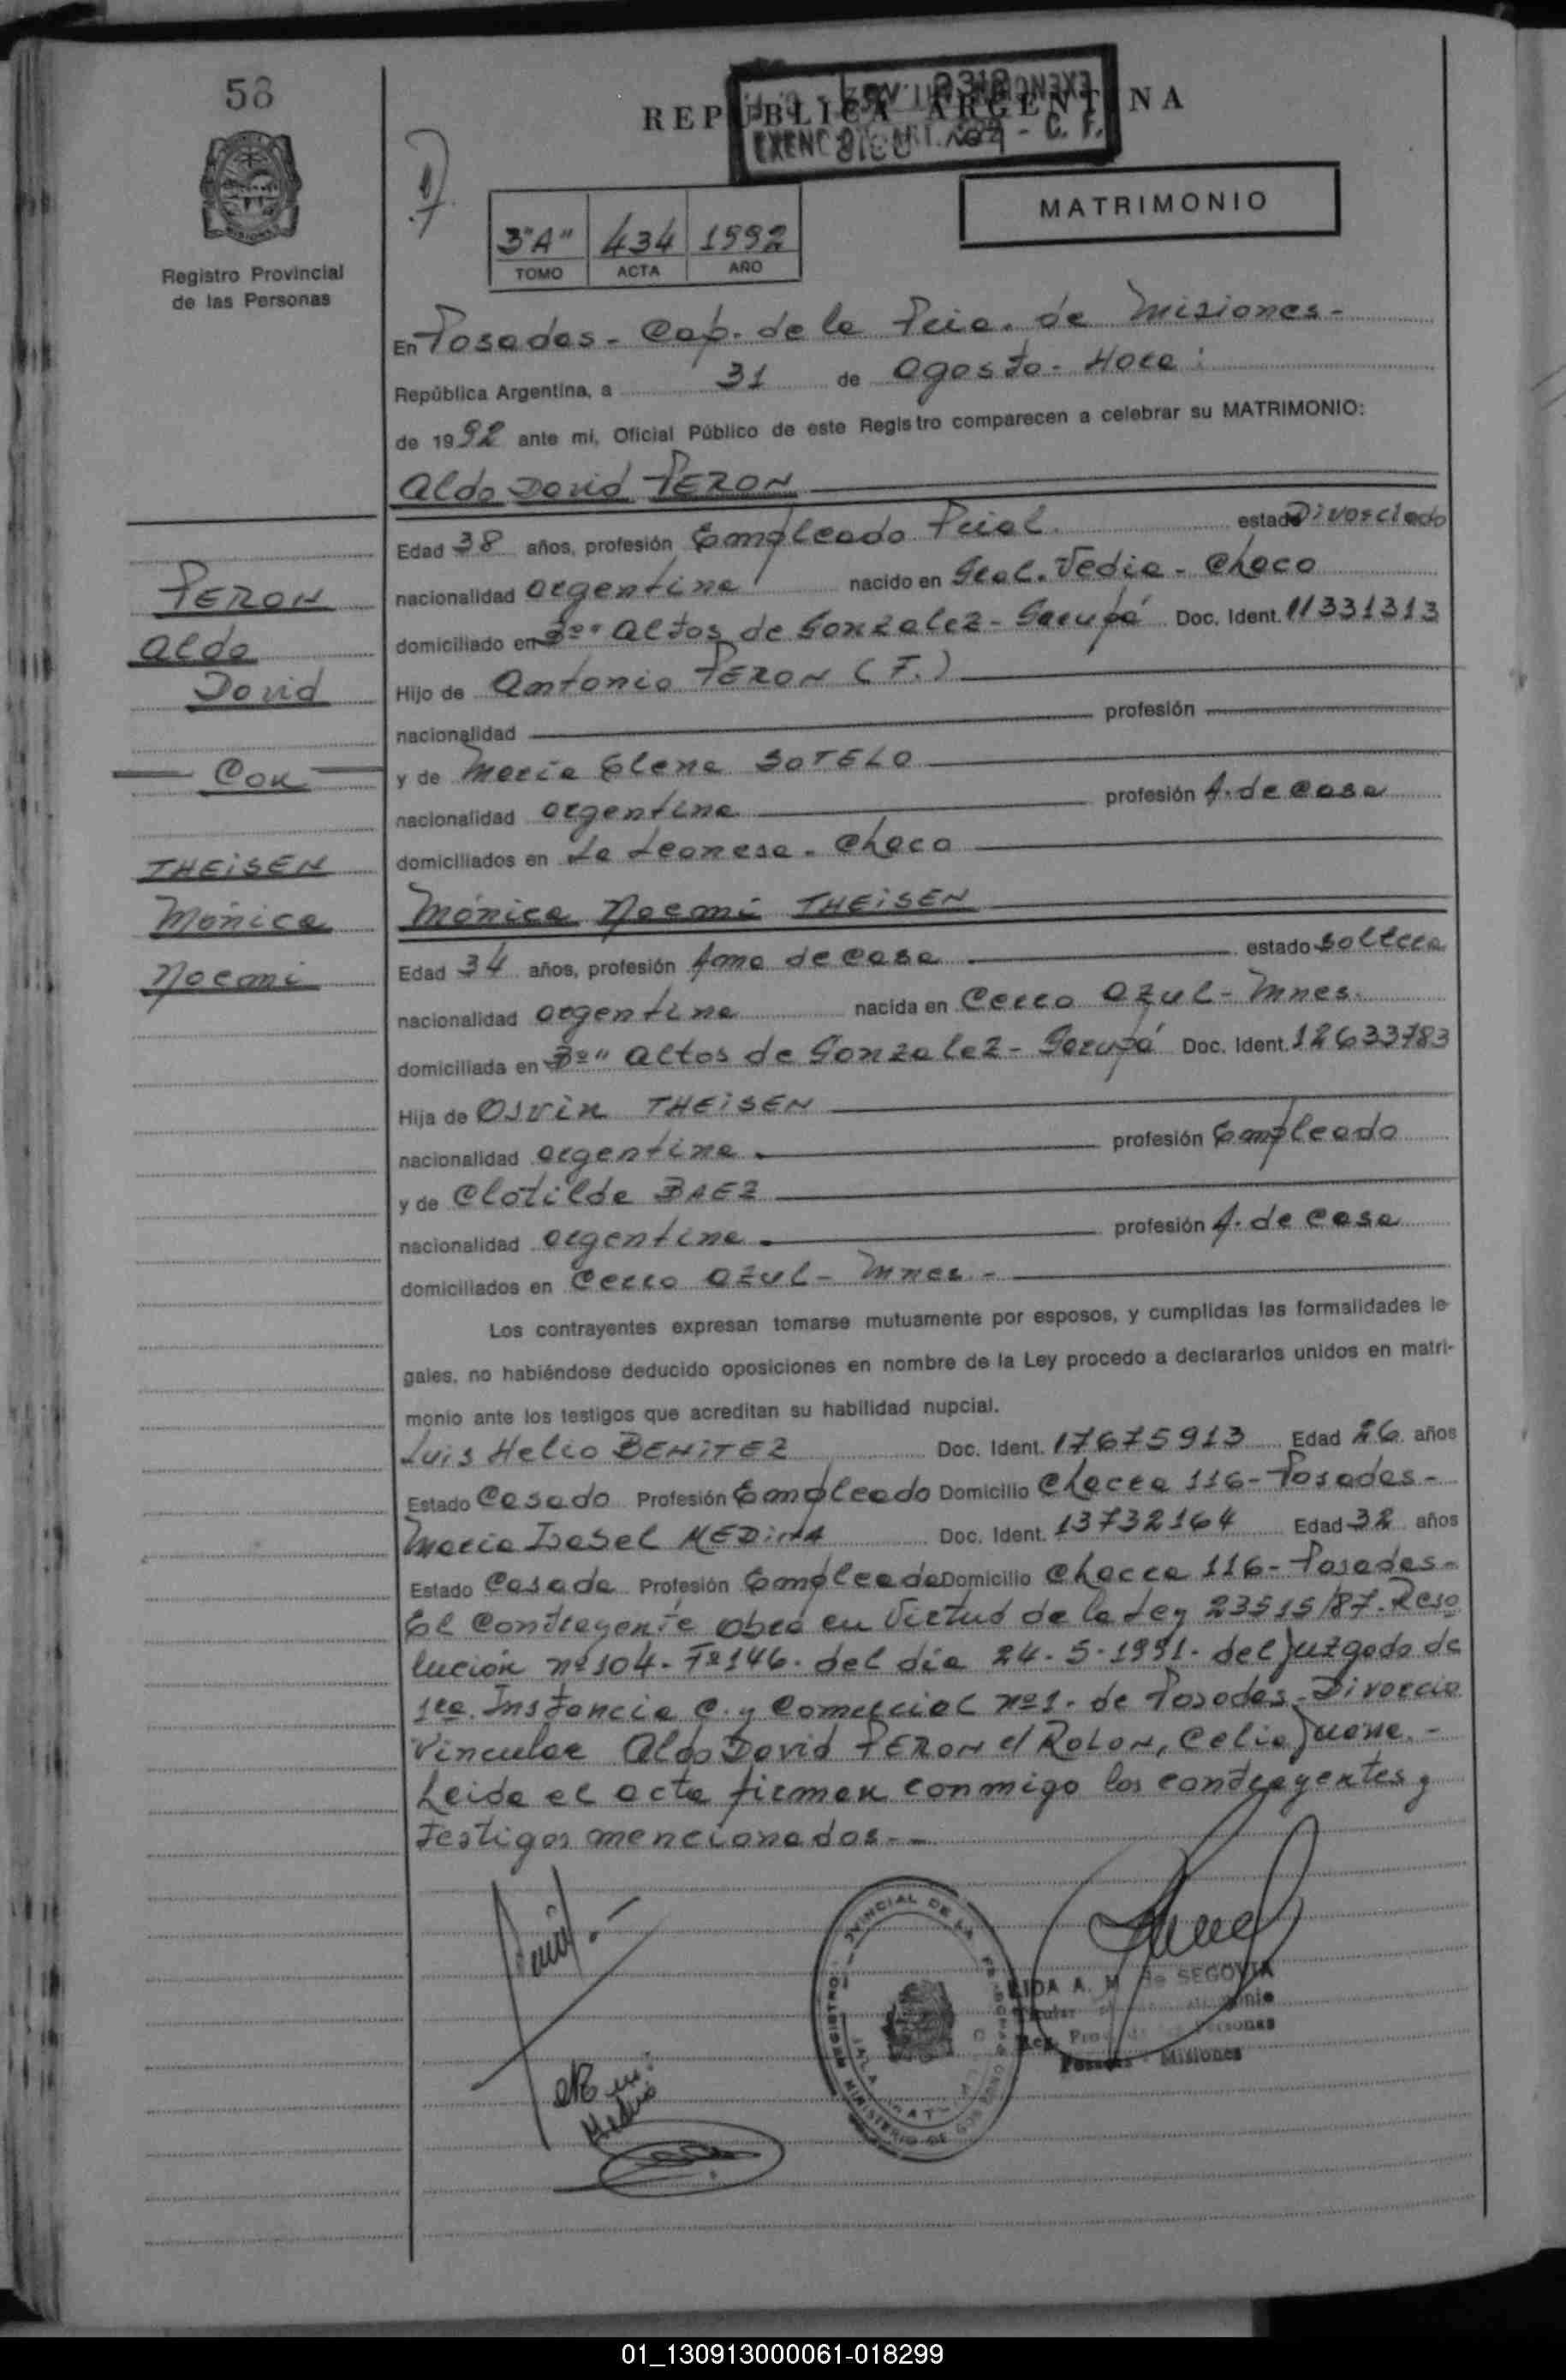 58
REPUBLICA ARGENTINA
EXENC. ART. 1 - C. F.
MATRIMONIO
3"A" 434 1992
TOMO ACTA AÑO
Registro Provincial
de las Personas
En Posadas - Cap. de la Pcia. de Misiones -
República Argentina, a 31 de Agosto - Hora :
de 1992 ante mi, Oficial Público de este Registro comparecen a celebrar su MATRIMONIO:
Aldo David PERON
Edad 38 años, profesión Empleado Pcial. estado Divorciado
nacionalidad argentina nacido en Gral. Vedia - Chaco
domiciliado en Bº" Altos de Gonzalez - Garupá Doc. Ident. 11331313
Hijo de Antonio PERON (F.)
nacionalidad profesión
y de Maria Elena SOTELO
nacionalidad argentina profesión A. de Casa
domiciliados en La Leonesa - Chaco
Mónica Noemi THEISEN
Edad 34 años, profesión Ama de Casa estado Soltera
nacionalidad argentina nacida en Cerro Azul - Mnes.
domiciliada en Bº" Altos de Gonzalez - Garupá Doc. Ident. 12633783
Hija de Osvin THEISEN
nacionalidad argentina profesión Empleado
y de Clotilde BAEZ
nacionalidad argentina profesión A. de Casa
domiciliados en Cerro Azul - Mnes -
Los contrayentes expresan tomarse mutuamente por esposos, y cumplidas las formalidades le-
gales, no habiéndose deducido oposiciones en nombre de la Ley procedo a declararlos unidos en matri-
monio ante los testigos que acreditan su habilidad nupcial.
Luis Helio BENITEZ Doc. Ident. 17675913 Edad 26 años
Estado Casado Profesión Empleado Domicilio Chacra 116 - Posadas -
Maria Isabel MEDINA Doc. Ident. 13732164 Edad 32 años
Estado Casada Profesión Empleada Domicilio Chacra 116 - Posadas -
El Contrayente obra en Virtud de la Ley 23515/87. Reso
lución nº 104. Fº 146. del día 24.5.1991. del Juzgado de
1ra. Instancia C. y Comercial nº 1. de Posadas - Divorcio
Vincular Aldo David PERON c/ ROLON, Celia Juana. -
Leida el acta firman conmigo los contrayentes y
testigos mencionados. -
PERON
Aldo
David
Con
THEISEN
Mónica
Noemi
A. M. de SEGOVIA
Reg. Prov. de las Personas
Posadas - Misiones
01_130913000061-018299